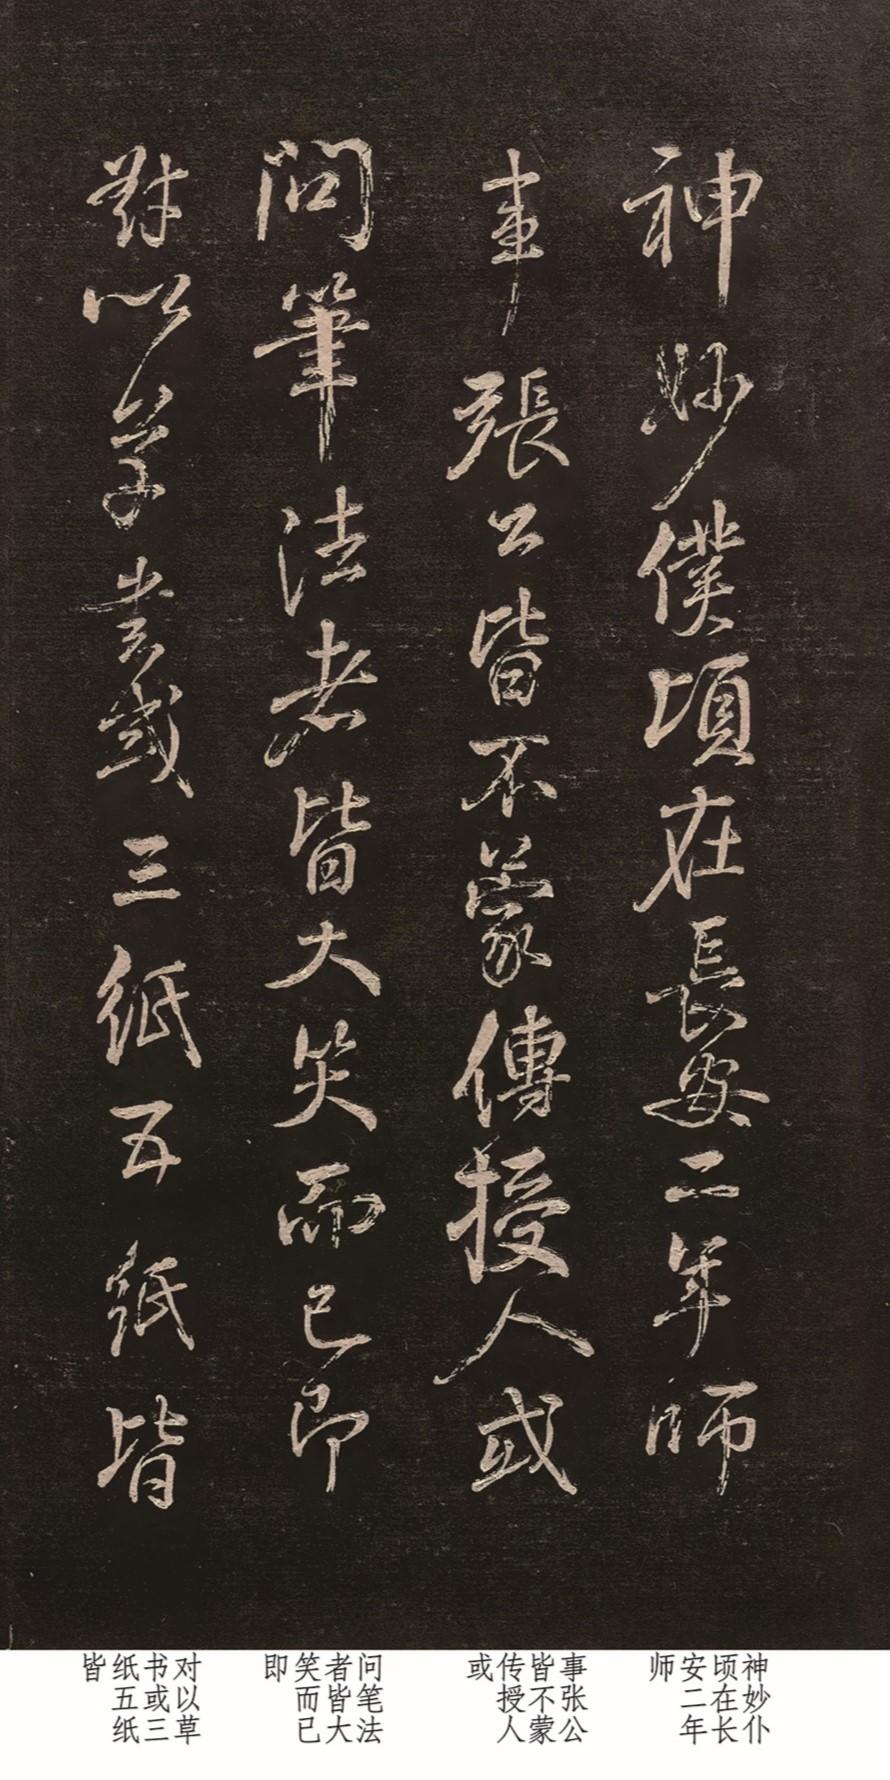 神妙僕頃在長安二年師
事張公皆不蒙傳授人或
問筆法者皆大笑而已即
對以草書或三紙五紙皆
神妙仆
顷在长
安二年
师
事张公
皆不蒙
传授人
或
问笔法
者皆大
笑而已
即
对以草
书或三
纸五纸
皆